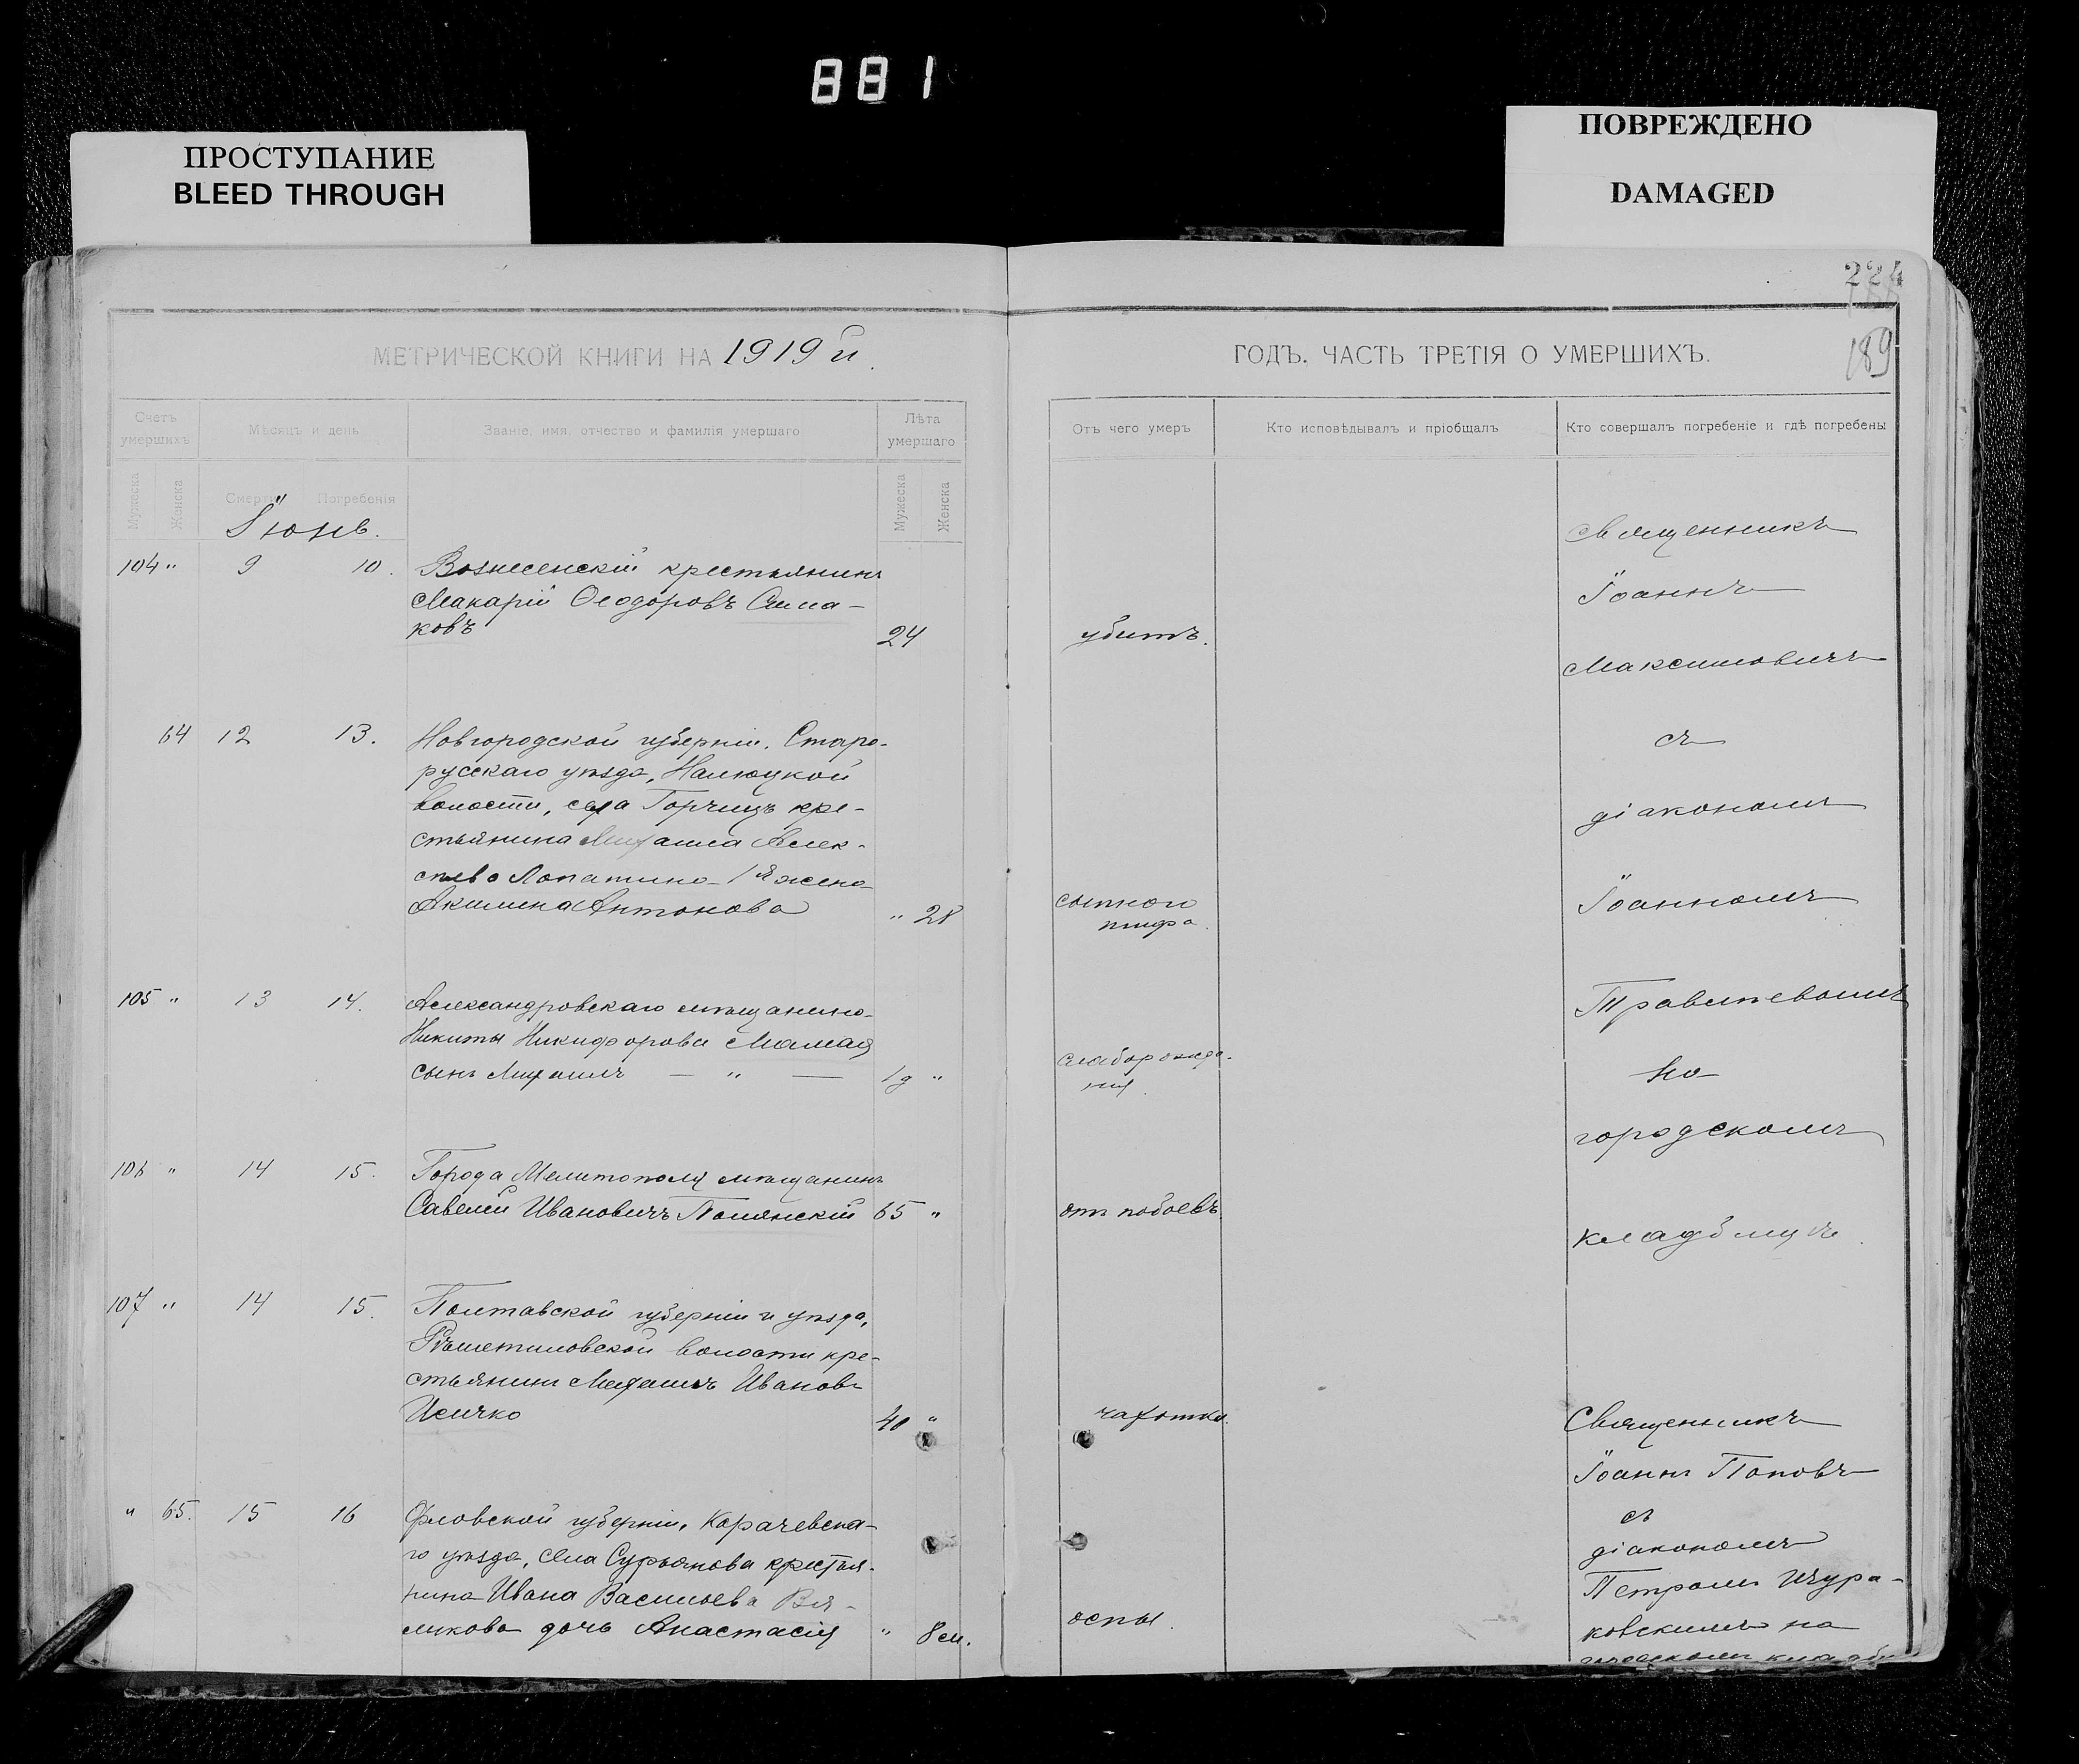 881
ПРОСТУПАНИЕ
BLEED THROUGH
ПОВРЕЖДЕНО
DAMAGED
224
189
МЕТРИЧЕСКОЙ КНИГИ НА 1919й
ГОДЪ. ЧАСТЬ ТРЕТІЯ О УМЕРШИХЪ.
Счетъ умершихъ
Мѣсяцъ и день
Званіе, имя, отчество и фамилія умершаго
Лѣта умершаго
Отъ чего умеръ
Кто исповѣдывалъ и пріобщалъ
Кто совершалъ погребеніе и гдѣ погребены
Мужеска
Женска
Смерти
Погребенія
Мужеска
Женска
Іюнь.
104 " 9 10.
Вознесенскій крестьянинъ
Макарій Ѳеодоровъ Сима-
ковъ
24
убитъ.
64 12 13.
Новгородской губерніи, Старо-
русскаго уѣзда, Налюцкой
волости, села Горчицъ кре-
стьянина Михаила Алек-
сѣева Лопатина 1я жена
Акилина Антонова
" 28
сыпного
тифа.
105 " 13 14.
Александровскаго мѣщанина
Никиты Никифорова Мамая
сынъ Михаилъ — " —
1 д "
слаборожде-
нія.
106 " 14 15.
Города Мелитополя мѣщанинъ
Савелій Ивановичъ Полянскій
65 "
отъ побоевъ.
107 " 14 15.
Полтавской губерніи и уѣзда,
Рѣшетиловской волости кре-
стьянинъ Михаилъ Ивановъ
Исичко
40 "
чахотка.
" 65. 15 16
Орловской губерніи, Карачевска-
го уѣзда, села Сурьянова крестья-
нина Ивана Васильева
дочь Анастасія
" 8 м.
оспы.
Священникъ
Іоаннъ
Максимовичъ
съ
діакономъ
Іоанномъ
Травлеевымъ
на
городскомъ
кладбищѣ.
Священникъ
Іоаннъ Поповъ
съ
діакономъ
Петромъ Щура-
ковскимъ на
городскомъ кладби